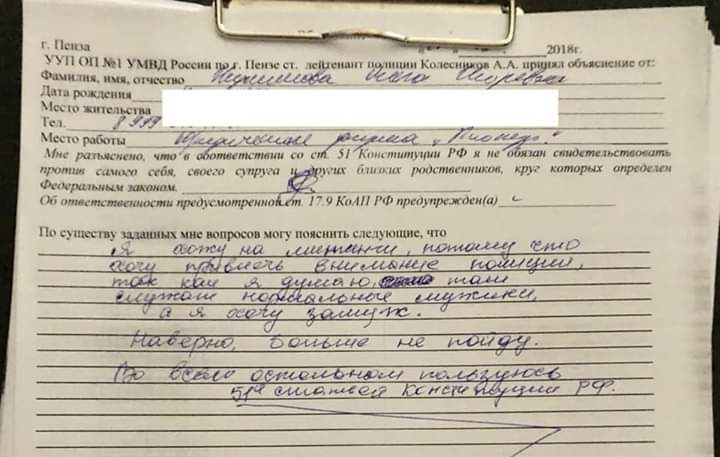 г. Пенза 2018г.
УУП ОП №1 УМВД России по г. Пензе ст. лейтенант полиции Колесников А.А. принял объяснение от:
Фамилия, имя, отчество Игоревна
Дата рождения
Место жительства
Тел. 8 999
Место работы Юридическая фирма „Пионер"
Мне разъяснено, что в соответствии со ст. 51 Конституции РФ я не обязан свидетельствовать
против самого себя, своего супруга и других близких родственников, круг которых определен
Федеральным законом.
Об ответственности предусмотренной ст. 17.9 КоАП РФ предупрежден(а)
По существу заданных мне вопросов могу пояснить следующие, что
Я хожу на митинги, потому что
хочу привлечь внимание полиции,
так как я думаю, там
служат нормальные мужики,
а я хочу замуж.
Наверно, больше не пойду.
Во всем остальном пользуюсь
51й статьей Конституции РФ.